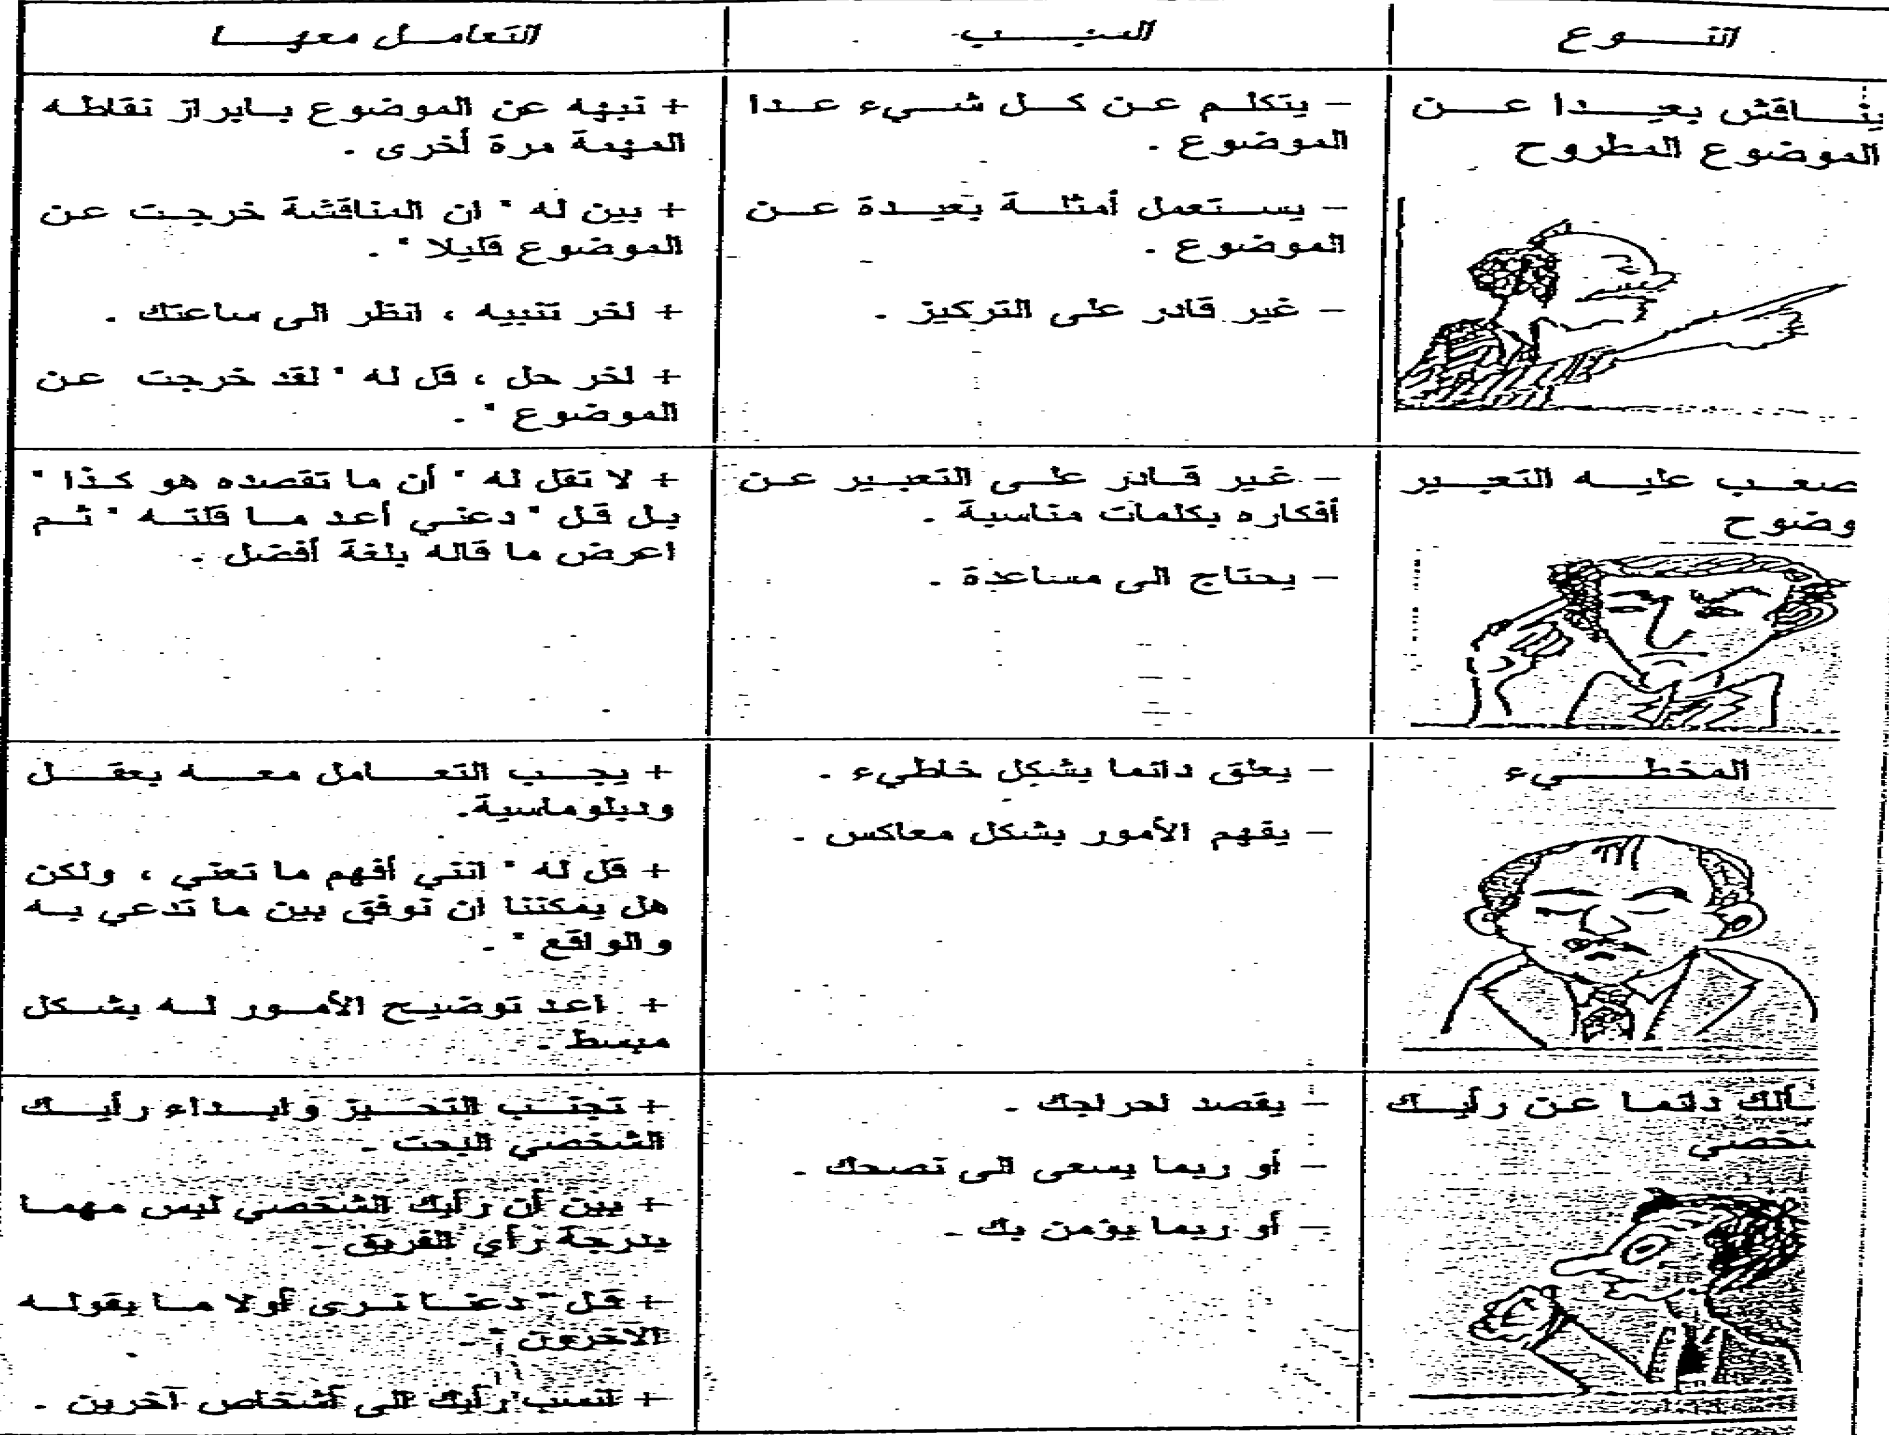 النوع
السبب
التعامل معها
يناقش بعيدا عن
الموضوع المطروح
- يتكلم عن كل شيء عدا
الموضوع .
- يستعمل أمثلة بعيدة عن
الموضوع .
- غير قادر على التركيز .
+ نبهه عن الموضوع بابراز نقاطه
المهمة مرة أخرى .
+ بين له " ان المناقشة خرجت عن
الموضوع قليلا " .
+ اخر تنبيه ، انظر الى ساعتك .
+ اخر حل ، قل له " لقد خرجت عن
الموضوع " .
صعب عليه التعبير
وضوح
- غير قادر على التعبير عن
أفكاره بكلمات مناسبة .
- يحتاج الى مساعدة .
+ لا تقل له " أن ما تقصده هو كذا "
بل قل " دعني أعد ما قلته " ثم
اعرض ما قاله بلغة أفضل .
المخطيء
- يعلق دائما بشكل خاطيء .
- يفهم الأمور بشكل معاكس .
+ يجب التعامل معه بعقل
ودبلوماسية.
+ قل له " انني أفهم ما تعني ، ولكن
هل يمكننا ان نوفق بين ما تدعي به
والواقع " .
+ اعد توضيح الأمور له بشكل
مبسط .
سألك دائما عن رأيك
شخصي
- يقصد احراجك .
- أو ربما يسعى الى نصحك .
- أو ربما يؤمن بك .
+ تجنب التحيز وابداء رأيك
الشخصي البحت .
+ بين أن رأيك الشخصي ليس مهما
بدرجة رأي الفريق .
+ قل " دعنا نرى أولا ما يقوله
الاخرون " .
+ انسب رأيك الى أشخاص آخرين .